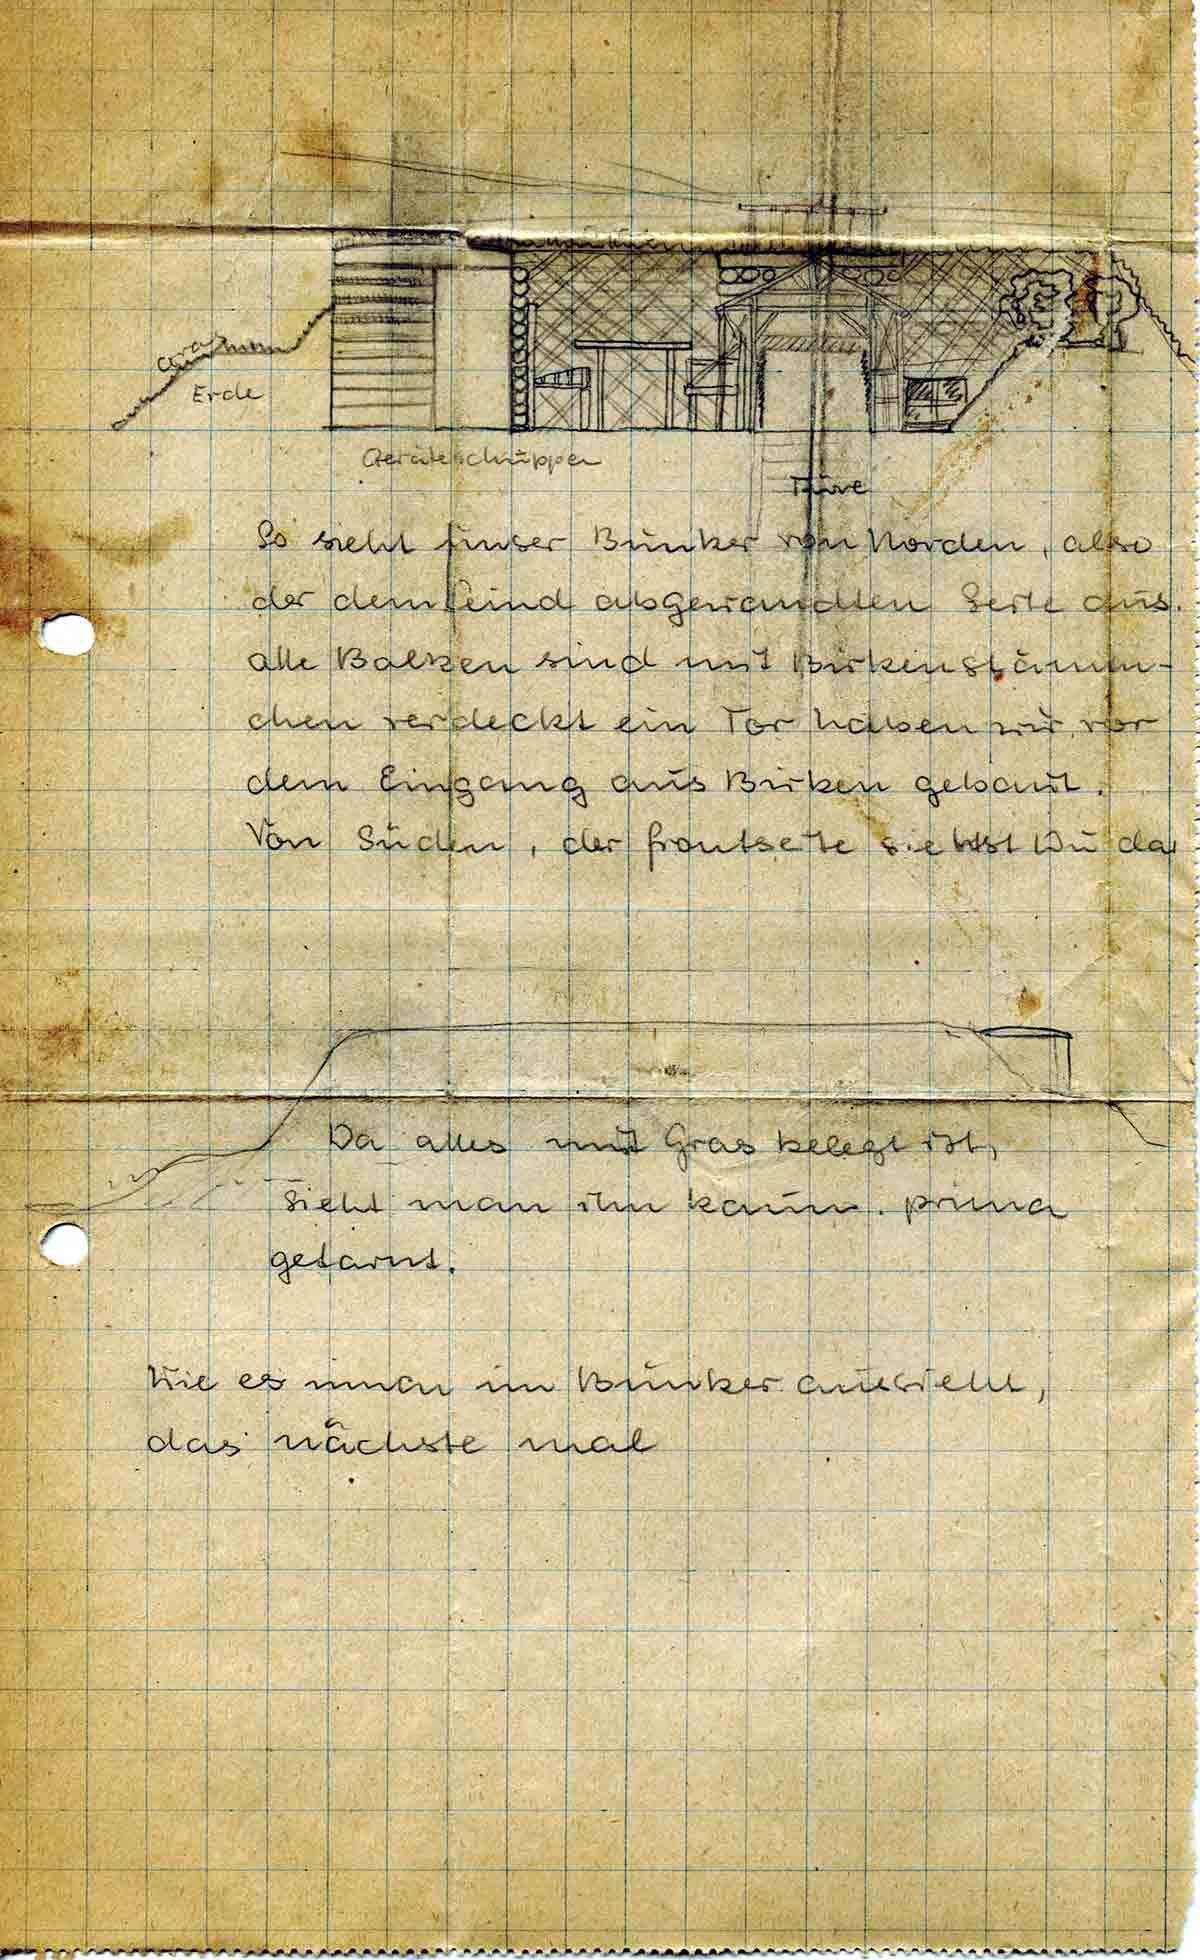 Gras
Erde
Geräteschuppen
Türe
So sieht unser Bunker von Norden, also
der dem Feind abgewandten Seite aus.
alle Balken sind mit Birkenstämm-
chen verdeckt ein Tor haben wir vor
dem Eingang aus Birken gebaut.
Von Süden, der Frontseite siehst Du das
Da alles mit Gras belegt ist,
sieht man ihn kaum. prima
getarnt.
Wie es innen im Bunker aussieht,
das nächste mal